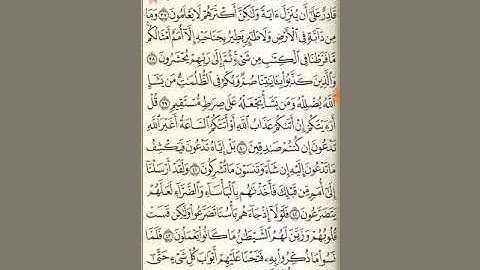 قَادِرٌ عَلَىٰٓ أَن يُنَزِّلَ ءَايَةً وَلَٰكِنَّ أَكْثَرَهُمْ لَا يَعْلَمُونَ ٣٧ وَمَا
مِن دَآبَّةٍ فِى ٱلْأَرْضِ وَلَا طَٰٓئِرٍ يَطِيرُ بِجَنَاحَيْهِ إِلَّآ أُمَمٌ أَمْثَالُكُم
مَّا فَرَّطْنَا فِى ٱلْكِتَٰبِ مِن شَىْءٍ ثُمَّ إِلَىٰ رَبِّهِمْ يُحْشَرُونَ ٣٨
وَٱلَّذِينَ كَذَّبُوا۟ بِـَٔايَٰتِنَا صُمٌّ وَبُكْمٌ فِى ٱلظُّلُمَٰتِ مَن يَشَإِ
ٱللَّهُ يُضْلِلْهُ وَمَن يَشَأْ يَجْعَلْهُ عَلَىٰ صِرَٰطٍ مُّسْتَقِيمٍ ٣٩ قُلْ
أَرَءَيْتَكُمْ إِنْ أَتَىٰكُمْ عَذَابُ ٱللَّهِ أَوْ أَتَتْكُمُ ٱلسَّاعَةُ أَغَيْرَ ٱللَّهِ
تَدْعُونَ إِن كُنتُمْ صَٰدِقِينَ ٤٠ بَلْ إِيَّاهُ تَدْعُونَ فَيَكْشِفُ
مَا تَدْعُونَ إِلَيْهِ إِن شَآءَ وَتَنسَوْنَ مَا تُشْرِكُونَ ٤١ وَلَقَدْ أَرْسَلْنَآ
إِلَىٰٓ أُمَمٍ مِّن قَبْلِكَ فَأَخَذْنَٰهُم بِٱلْبَأْسَآءِ وَٱلضَّرَّآءِ لَعَلَّهُمْ
يَتَضَرَّعُونَ ٤٢ فَلَوْلَآ إِذْ جَآءَهُم بَأْسُنَا تَضَرَّعُوا۟ وَلَٰكِن قَسَتْ
قُلُوبُهُمْ وَزَيَّنَ لَهُمُ ٱلشَّيْطَٰنُ مَا كَانُوا۟ يَعْمَلُونَ ٤٣ فَلَمَّا
نَسُوا۟ مَا ذُكِّرُوا۟ بِهِۦ فَتَحْنَا عَلَيْهِمْ أَبْوَٰبَ كُلِّ شَىْءٍ حَتَّىٰٓ